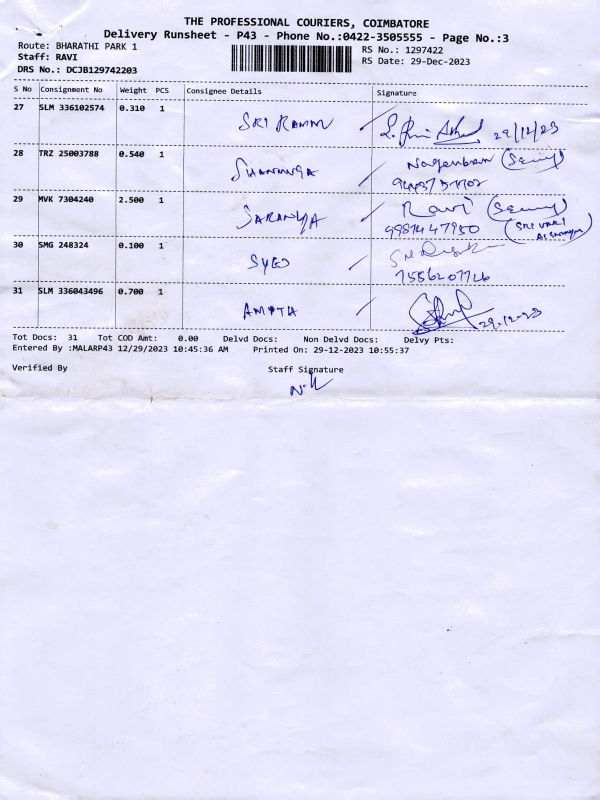 THE PROFESSIONAL COURIERS, COIMBATORE
Delivery Runsheet - P43 - Phone No.:0422-3505555 - Page No.:3
Route: BHARATHI PARK 1
RS No.: 1297422
Staff: RAVI
RS Date: 29-Dec-2023
DRS No.: DCJB129742203
S No Consignment No Weight PCS Consignee Details Signature
27 SLM 336102574 0.310 1 SRI RAMM 29/12/23
28 TRZ 25003788 0.540 1
29 MVK 7304240 2.500 1 SARANYA Ravi
30 SMG 248324 0.100 1 SYED
7556207726
31 SLM 336043496 0.700 1 29.12-23
Tot Docs: 31 Tot COD Amt: 0.00 Delvd Docs: Non Delvd Docs: Delvy Pts:
Entered By :MALARP43 12/29/2023 10:45:36 AM Printed On: 29-12-2023 10:55:37
Verified By Staff Signature